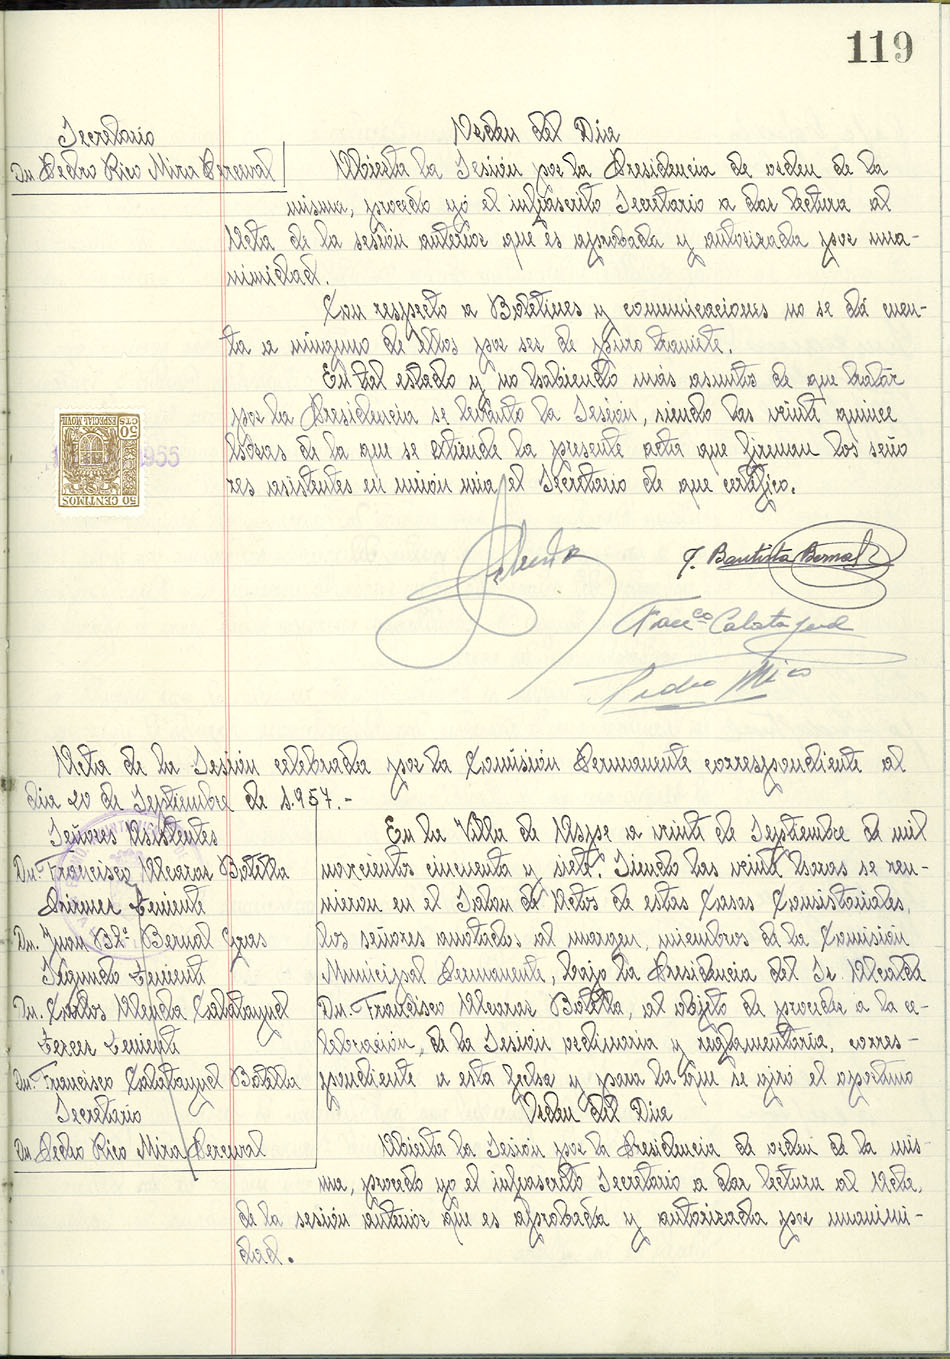 119
Secretario
Dn Pedro Rico Mira Perceval
Orden del Dia
Abierta la Sesión por la Presidencia de orden de la
misma, procedo yó el infrascrito Secretario a dar lectura al
Acta de la sesión anterior que es aprobada y autorizada por una-
nimidad.
Con respecto a Boletines y comunicaciones no se dá cuen-
ta a ninguno de ellos por ser de puro tramite.
En tal estado y no habiendo más asuntos de que tratar
por la Presidencia se levantó la Sesión, siendo las veinte quince
horas de la que se extiende la presente acta que firman los seño
res asistentes en unión mia el Secretario de que certifico.
50 CENTIMOS
ESPECIAL MOVIL
50 CTS
1955
J. Bautista Bernal
Francco Calatayud
Pedro Rico
Acta de la Sesión celebrada por la Comisión Permanente correspondiente al
dia 20 de Septiembre de 1.957.-
Señores Asistentes
Dn. Francisco Alcaraz Botella
Primer Teniente
Dn. Juan Bta. Bernal
Segundo Teniente
Dn. Carlos Calatayud
Tercer Teniente
Dn. Francisco Calatayud Botella
Secretario
Dn Pedro Rico Mira Perceval
En la Villa de Aspe a veinte de Septiembre de mil
novecientos cincuenta y siete. Siendo las veinte horas se reu-
nieron en el Salon de Actos de estas Casas Consistoriales,
los señores anotados al margen, miembros de la Comisión
Municipal Permanente, bajo la Presidencia del Sr Alcalde
Dn. Francisco Alcaraz Botella, al objeto de proceder a la ce-
lebración, de la Sesión ordinaria y reglamentaria, corres-
pondiente a esta fecha y para la que se giró el oportuno
Orden del Dia
Abierta la Sesión por la Presidencia de orden de la mis-
ma, procedo yo el infrascrito Secretario a dar lectura al Acta,
de la sesión anterior que es aprobada y autorizada por unanimi-
dad.